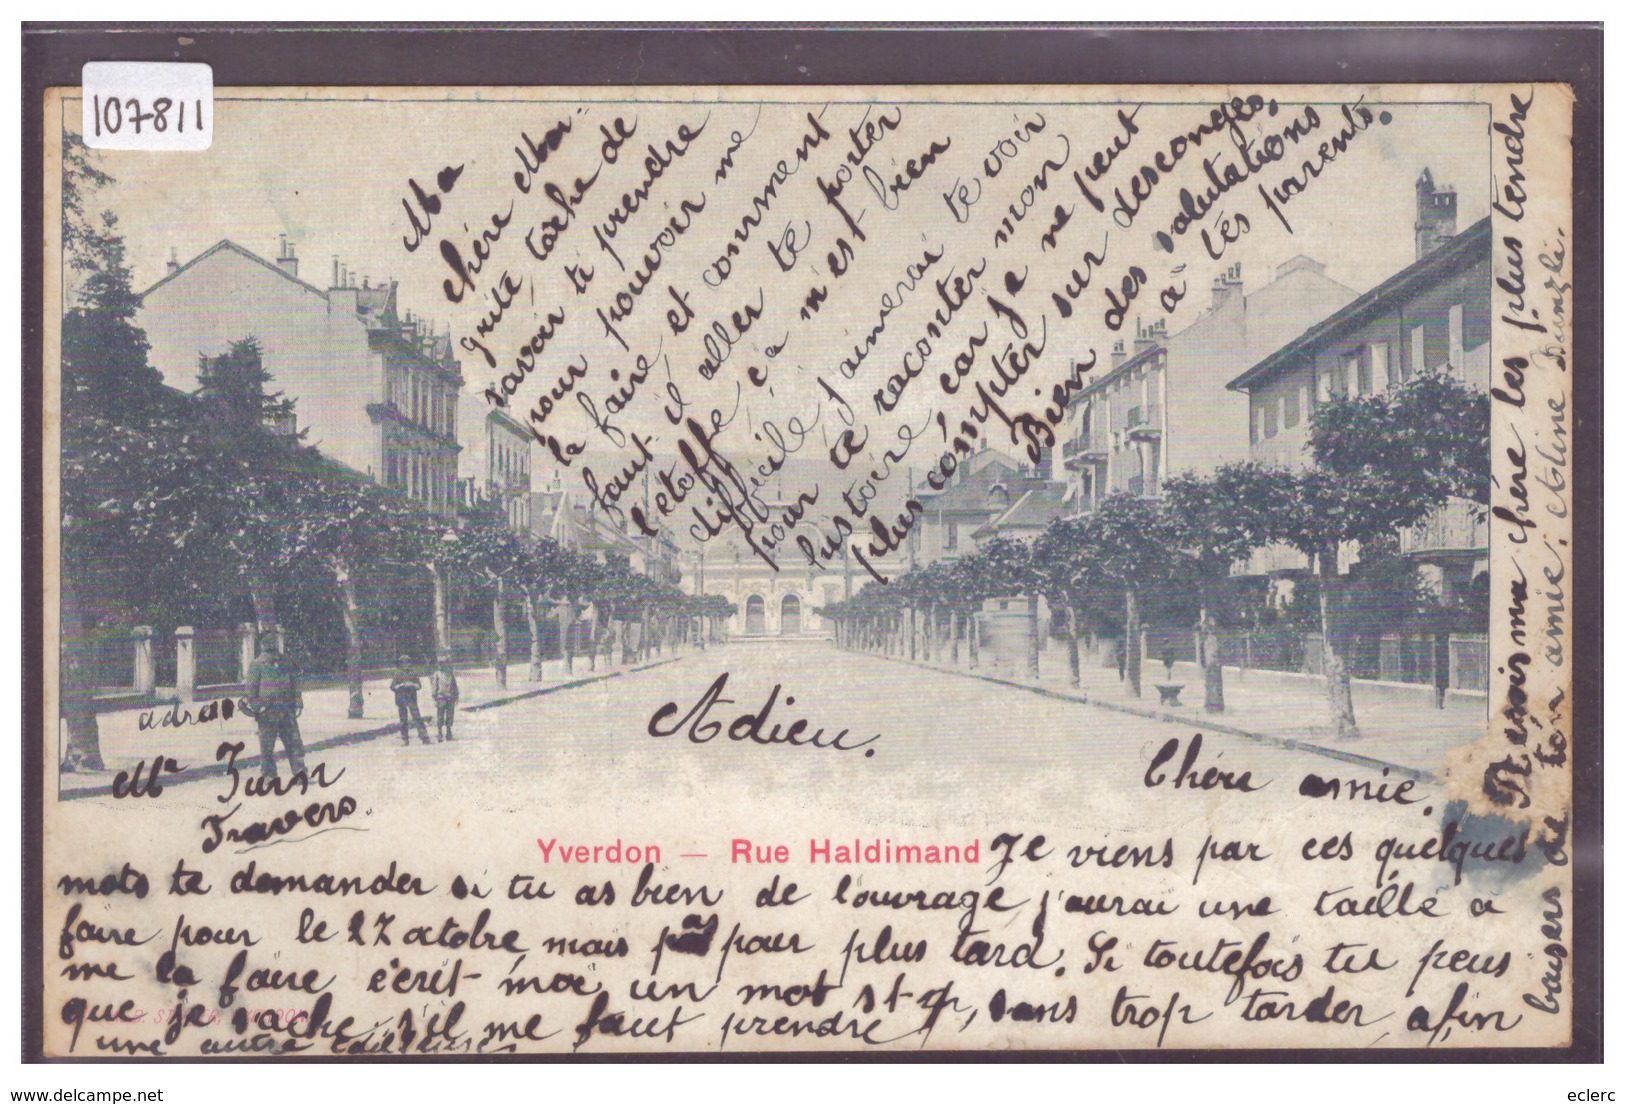 107811
Ma
chère Mar-
grite, tache de
savoir ti prendre
pour pouvoir me
la faire et comment
faut il aller te porter
l'étoffe ça m'est bien
difficile j'aimerai te voir
pour te raconter mon
histoire car je ne peut
plus compter sur desconges.
Bien des salutations
à tes parents.
Adieu.
Ma Turin
Travers.
Chère amie.
Yverdon — Rue Haldimand
Je viens par ces quelques
mots te demander si tu as bien de l'ouvrage j'aurai une taille à
faire pour le 27 octobre, mais pas pour plus tard. Si toutefois tu peus
me la faire écrit-moi un mot st-p, sans trop tarder, afin
que je sache s'il me faut prendre
une autre tailleuse
Reçois ma chère les plus tendre
baisers de ton amie: Aline
eclerc
https://www.delcampe.net